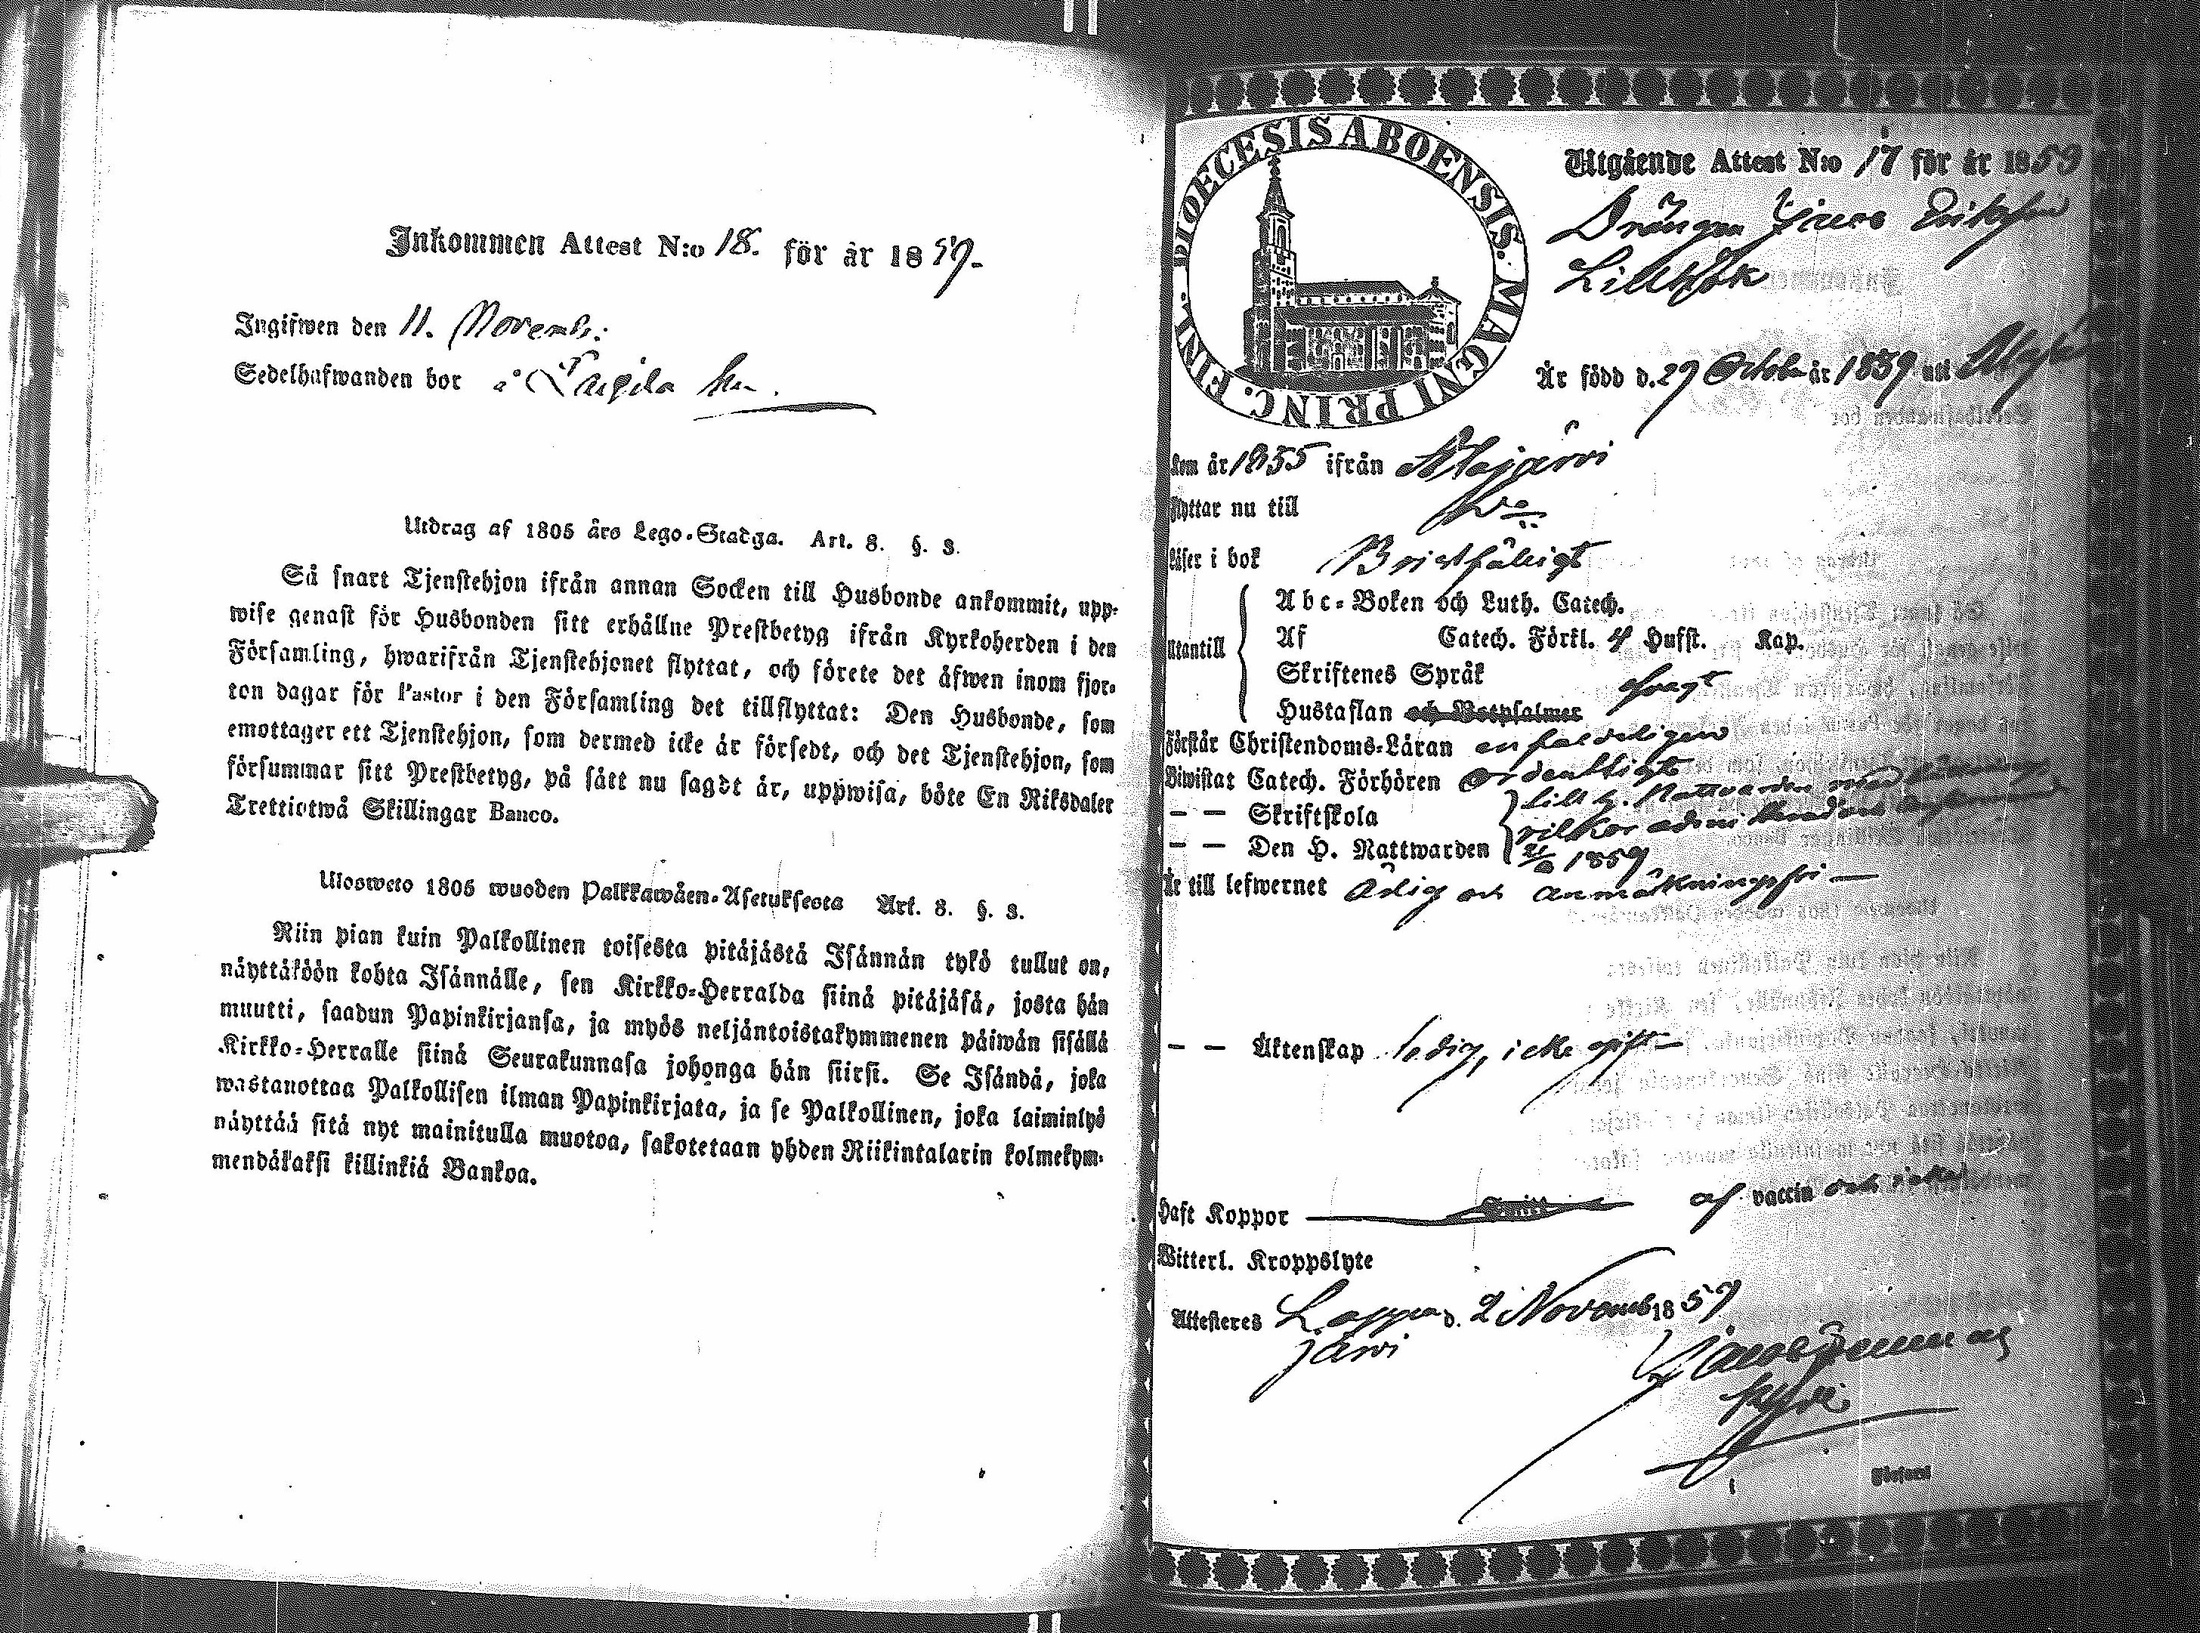 Inkommen Attest N:o 18. för år 1859.
Ingifwen den 11. Novemb:
Sedelhafwanden bor å
Utdrag af 1805 års Lego-Stadga. Art. 8. §. 3.
Så snart Tjenstehjon ifrån annan Socken till Husbonde ankommit, upp-
wise genast för Husbonden sitt erhållne Prestbetyg ifrån Kyrkoherden i den
Församling, hwarifrån Tjenstehjonet flyttat, och förete det äfwen inom fjor-
ton dagar för Pastor i den Församling det tillflyttat: Den Husbonde, som
emottager ett Tjenstehjon, som dermed icke är försedt, och det Tjenstehjon, som
försummar sitt Prestbetyg, på sätt nu sagdt är, uppwisa, böte En Riksdaler
Trettiotwå Skillingar Banco.
Ulosweto 1805 wuoden Palkkawäen-Asetuksesta Art. 8. §. 3.
Niin pian kuin Palkollinen toisesta pitäjästä Isännän tykö tullut on,
näyttäköön kohta Isännälle, sen Kirkko-Herralda siinä pitäjäsä, josta hän
muutti, saadun Papinkirjansa, ja myös neljäntoistakymmenen päiwän sisällä
Kirkko-Herralle siinä Seurakunnasa johonga hän siirsi. Se Isändä, joka
wastanottaa Palkollisen ilman Papinkirjata, ja se Palkollinen, joka laiminlyö
näyttää sitä nyt mainitulla muotoa, sakotetaan yhden Riikintalarin kolmekym-
mendäkaksi killinkiä Bankoa.
DIOECESIS ABOENSIS. MAGNI PRINC. FINL.
Utgående Attest N:o 17 för år 1859
Drängen Eriksson
Är född d. 29 Octob år 1839 uti
Kom år 1855 ifrån Alajärvi
Flyttar nu till Do
Läser i bok Bristfäligt
Utantill
Abc-Boken och Luth. Catech.
Af Catech. Förkl. 4 Hufst. Kap.
Skriftenes Språk
Hustaflan och Botpsalmer svagt
Förstår Christendoms-Läran enfaldeligen
Biwistat Catech. Förhören Ordentligt
— — Skriftskola till h. Nattvarden med
— — Den H. Nattwarden 1859
Är till lefwernet Ärlig och anmärkningsfri —
— — Äktenskap ledig, icke gift —
Haft Koppor af vaccin
Witterl. Kroppslyte
Attesteres Lappa d. 2 Novemb 1859
järvi